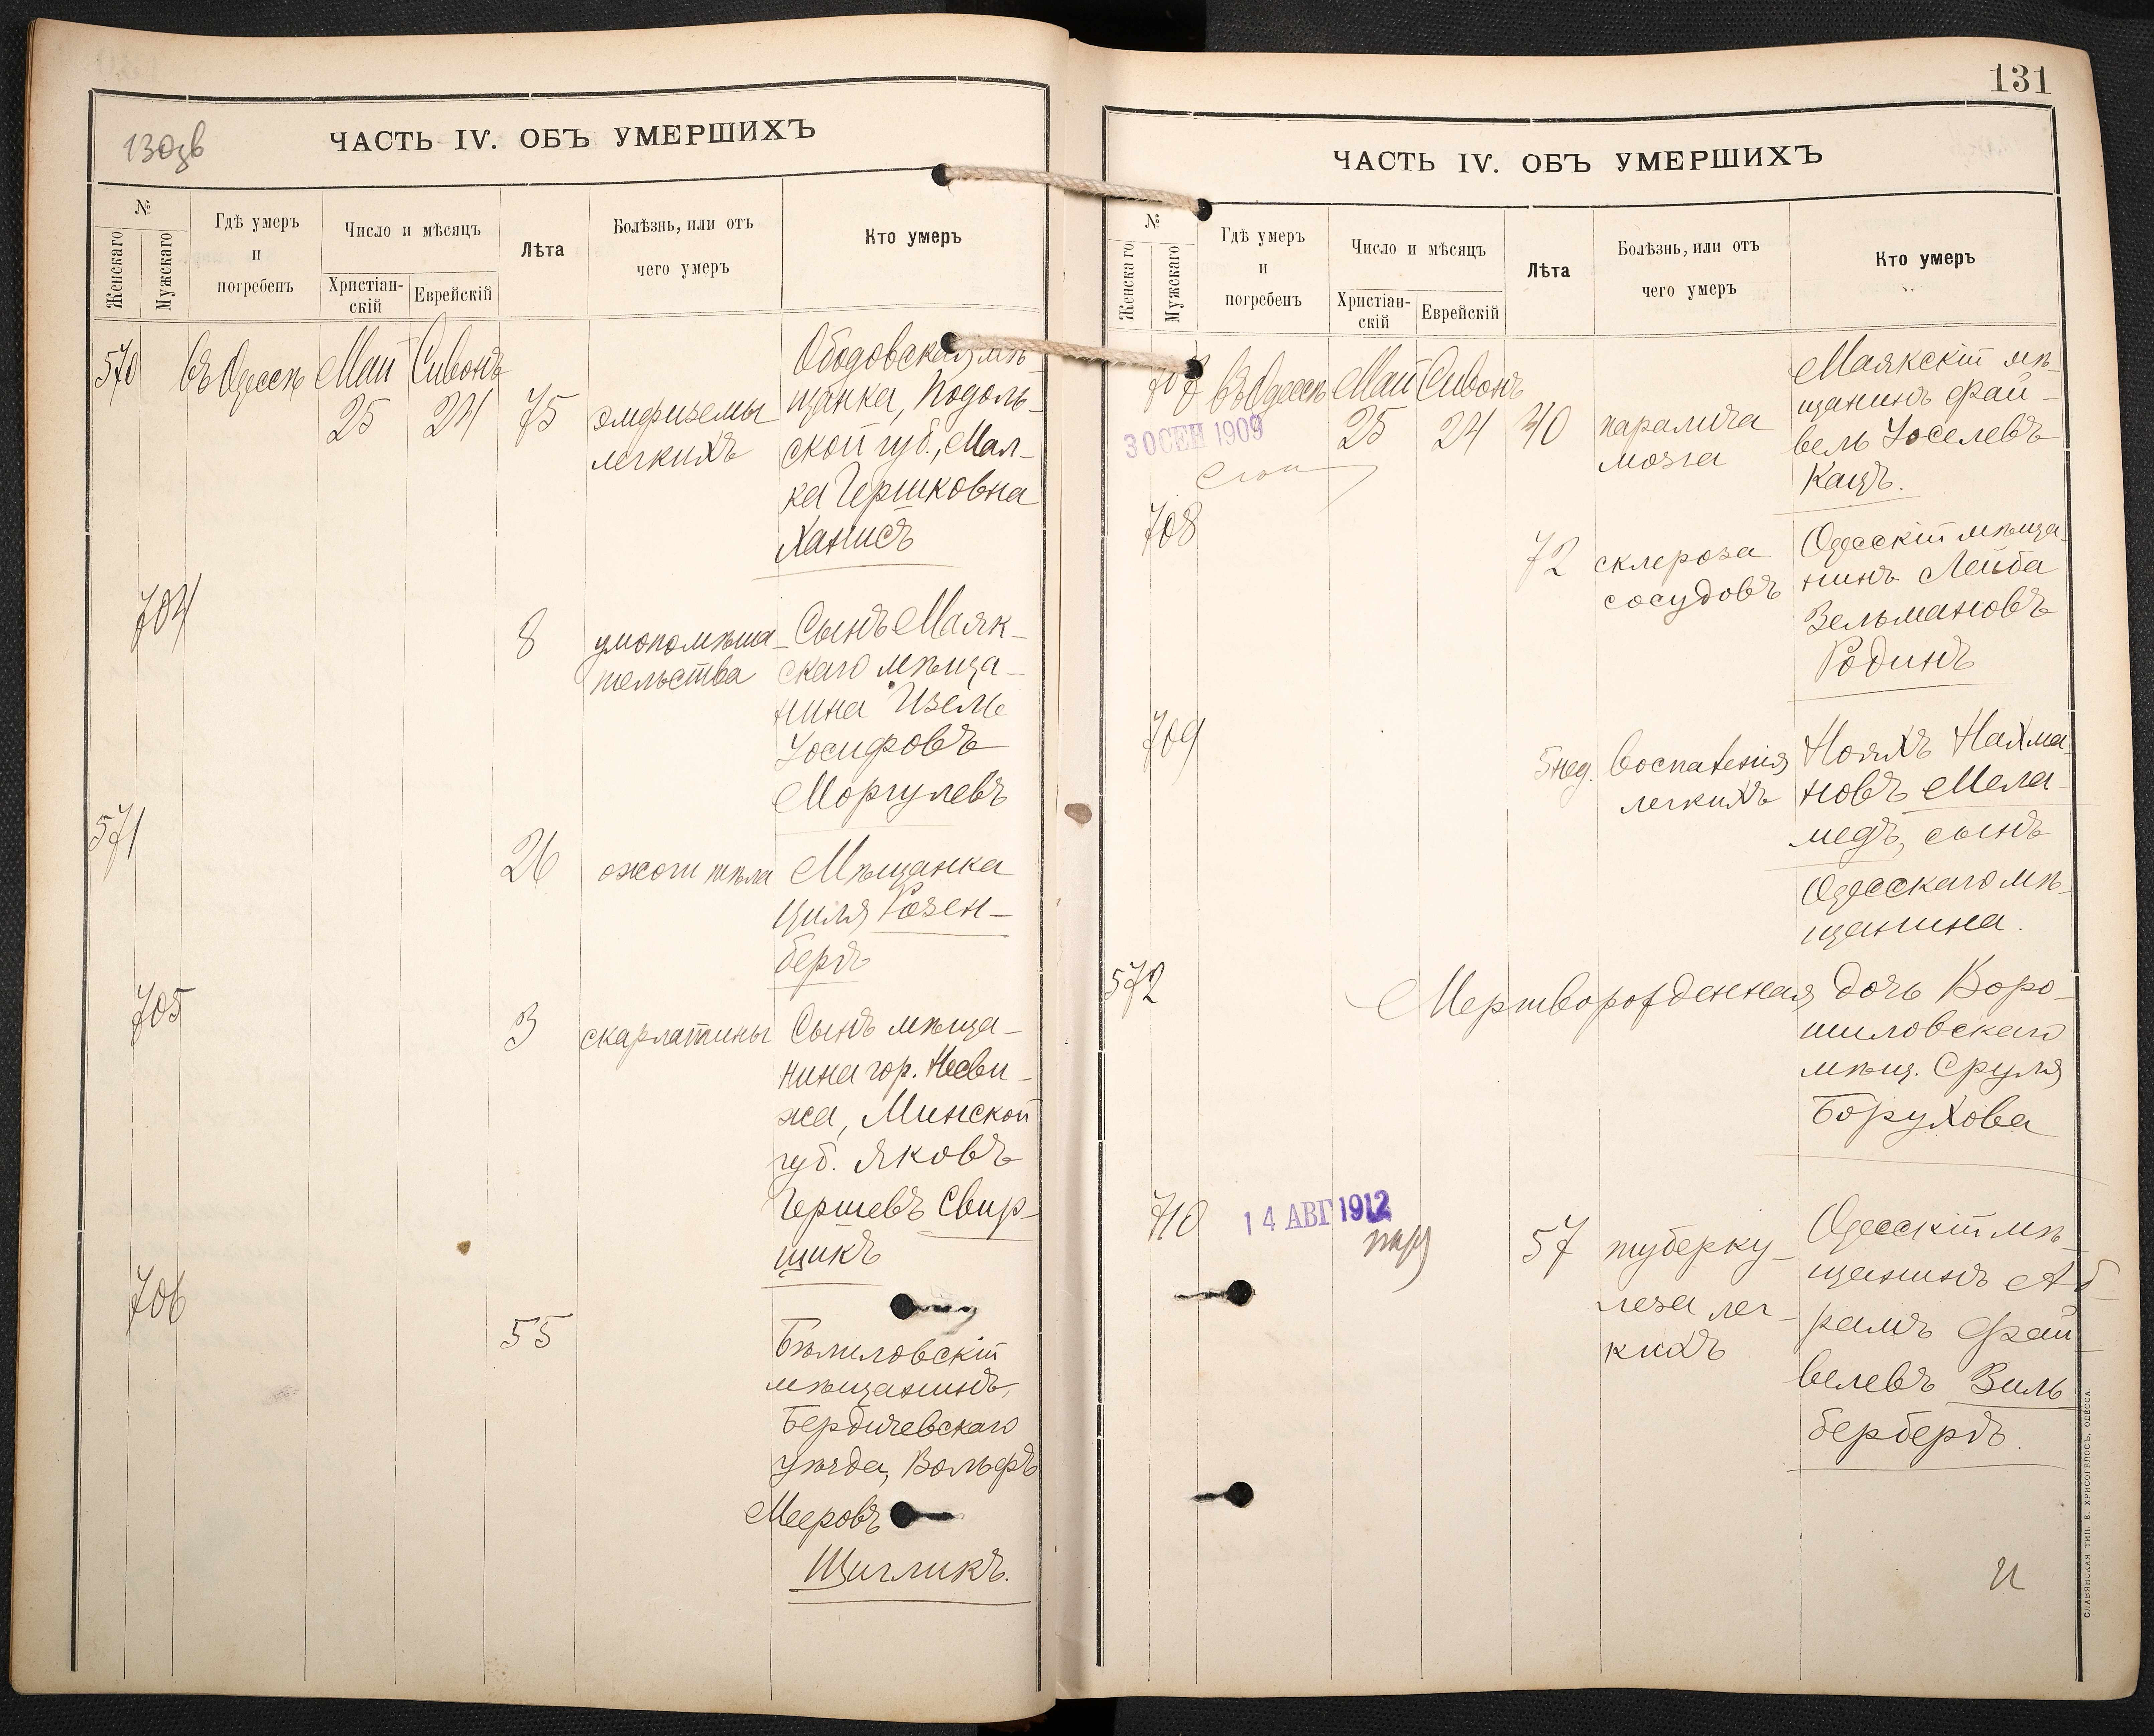 130зв
ЧАСТЬ IV. ОБЪ УМЕРШИХЪ
№
Женскаго
Мужскаго
Гдѣ умеръ
и
погребенъ
Число и мѣсяцъ
Христіан-
скій
Еврейскій
Лѣта
Болѣзнь, или отъ
чего умеръ
Кто умеръ
570
въ Одессѣ
Май
25
Сивонъ
24
75
эмфиземы
легкихъ
Ободовская мѣ-
щанка, Подоль-
ской губ., Мал-
ка Гершковна
Ханисъ
704
8
умопомѣша-
тельства
Сынъ Маяк-
скаго мѣща-
нина Изель
Іосифовъ
Моргулевъ
571
26
ожоги тѣла
Мѣщанка
Циля Розен-
бергъ
705
3
скарлатины
Сынъ мѣща-
нина гор. Несви-
жа, Минской
губ. Яковъ
Гершевъ Свир-
щикъ
706
55
Бѣлиловскій
мѣщанинъ,
Бердичевскаго
уѣзда, Вольфъ
Мееровъ
Щигликъ.
131
ЧАСТЬ IV. ОБЪ УМЕРШИХЪ
№
Женскаго
Мужскаго
Гдѣ умеръ
и
погребенъ
Число и мѣсяцъ
Христіан-
скій
Еврейскій
Лѣта
Болѣзнь, или отъ
чего умеръ
Кто умеръ
707
въ Одессѣ
Май
25
Сивонъ
24
30 СЕН 1909
40
паралича
мозга
Маякскій мѣ-
щанинъ Фай-
вель Іоселевъ
Кацъ.
708
72
склероза
сосудовъ
Одесскій мѣща-
нинъ Лейба
Зельмановъ
Родинъ
709
5 нед.
воспаленія
легкихъ
Нояхъ Нахма-
новъ Мела-
медъ, сынъ
Одесскаго мѣ-
щанина.
572
Мертворожденная дочь Воро-
шиловскаго
мѣщ. Сруля
Борухова
710
14 АВГ 1912
57
туберку-
леза лег-
кихъ
Одесскій мѣ-
щанинъ Аб-
рамъ Фай-
велевъ Зиль
бербергъ.
СЛАВЯНСКАЯ ТИП. Е. ХРИСОГЕЛОСЪ, ОДЕССА.